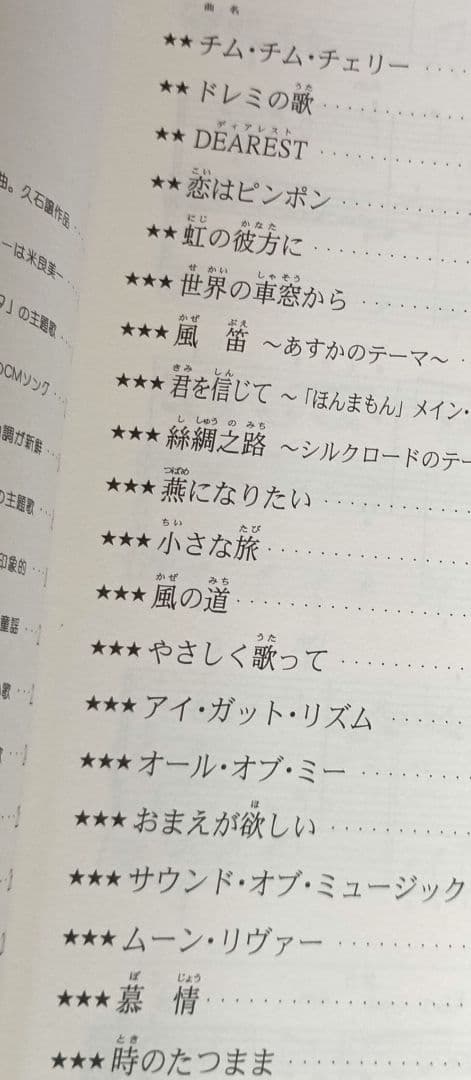 曲名
★★ チム・チム・チェリー
★★ ドレミの歌
★★ DEAREST
★★ 恋はピンポン
★★ 虹の彼方に
★★★ 世界の車窓から
★★★ 風 笛 ～あすかのテーマ～
★★★ 君を信じて ～「ほんまもん」メイン・
★★★ 絲綢之路 ～シルクロードのテー
★★★ 燕になりたい
★★★ 小さな旅
★★★ 風の道
★★★ やさしく歌って
★★★ アイ・ガット・リズム
★★★ オール・オブ・ミー
★★★ おまえが欲しい
★★★ サウンド・オブ・ミュージック
★★★ ムーン・リヴァー
★★★ 慕 情
★★★ 時のたつまま
曲。久石譲作品
ーは米良美一
」の主題歌
のCMソング
調が新鮮
の主題歌
印象的
童謡
歌